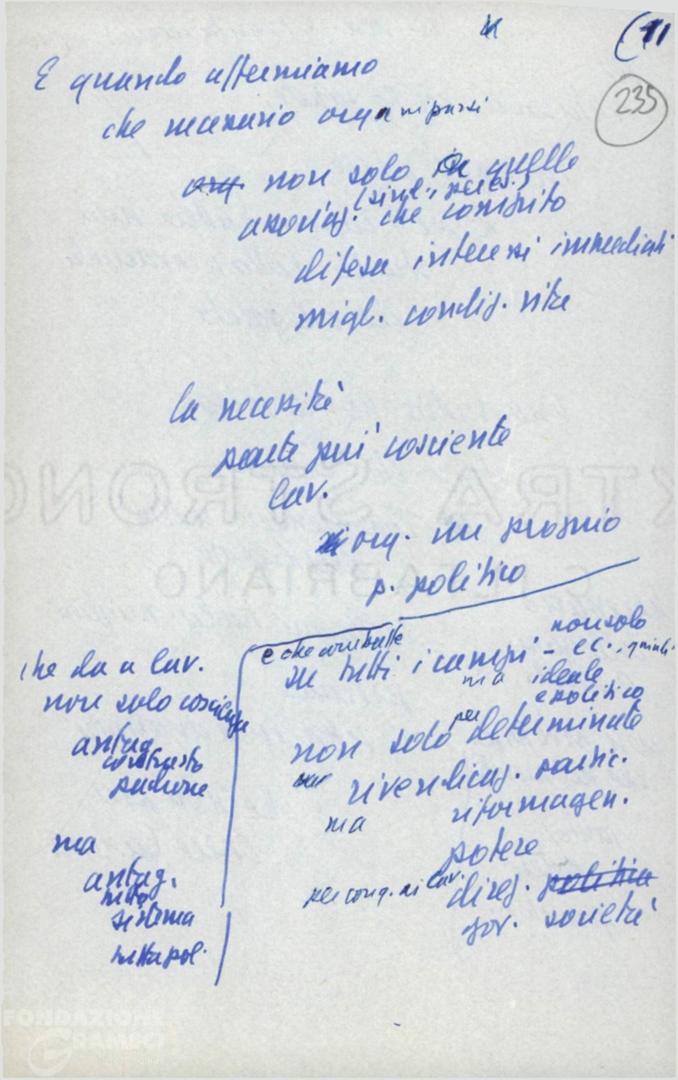 (11
235
E quando affermiamo
che necessario organizzarsi
non solo in quelle
(sind. e
associaz. che compito
difesa interessi immediati
migl. condiz. vita
la necessità
parte più cosciente
lav.
org. un proprio
p. politico
che da a lav.
non solo coscienza
antag.
contrasto
padrone
ma
antag.
tutto
sistema
e che combatte
non solo
su tutti i campi - ec.
ma ideale
e politico
non solo per determinate
rivendicaz. partic.
ma riforma gen.
potere
per conq. ai lav.
direz. politica
gov. società
FONDAZIONE
GRAMSCI